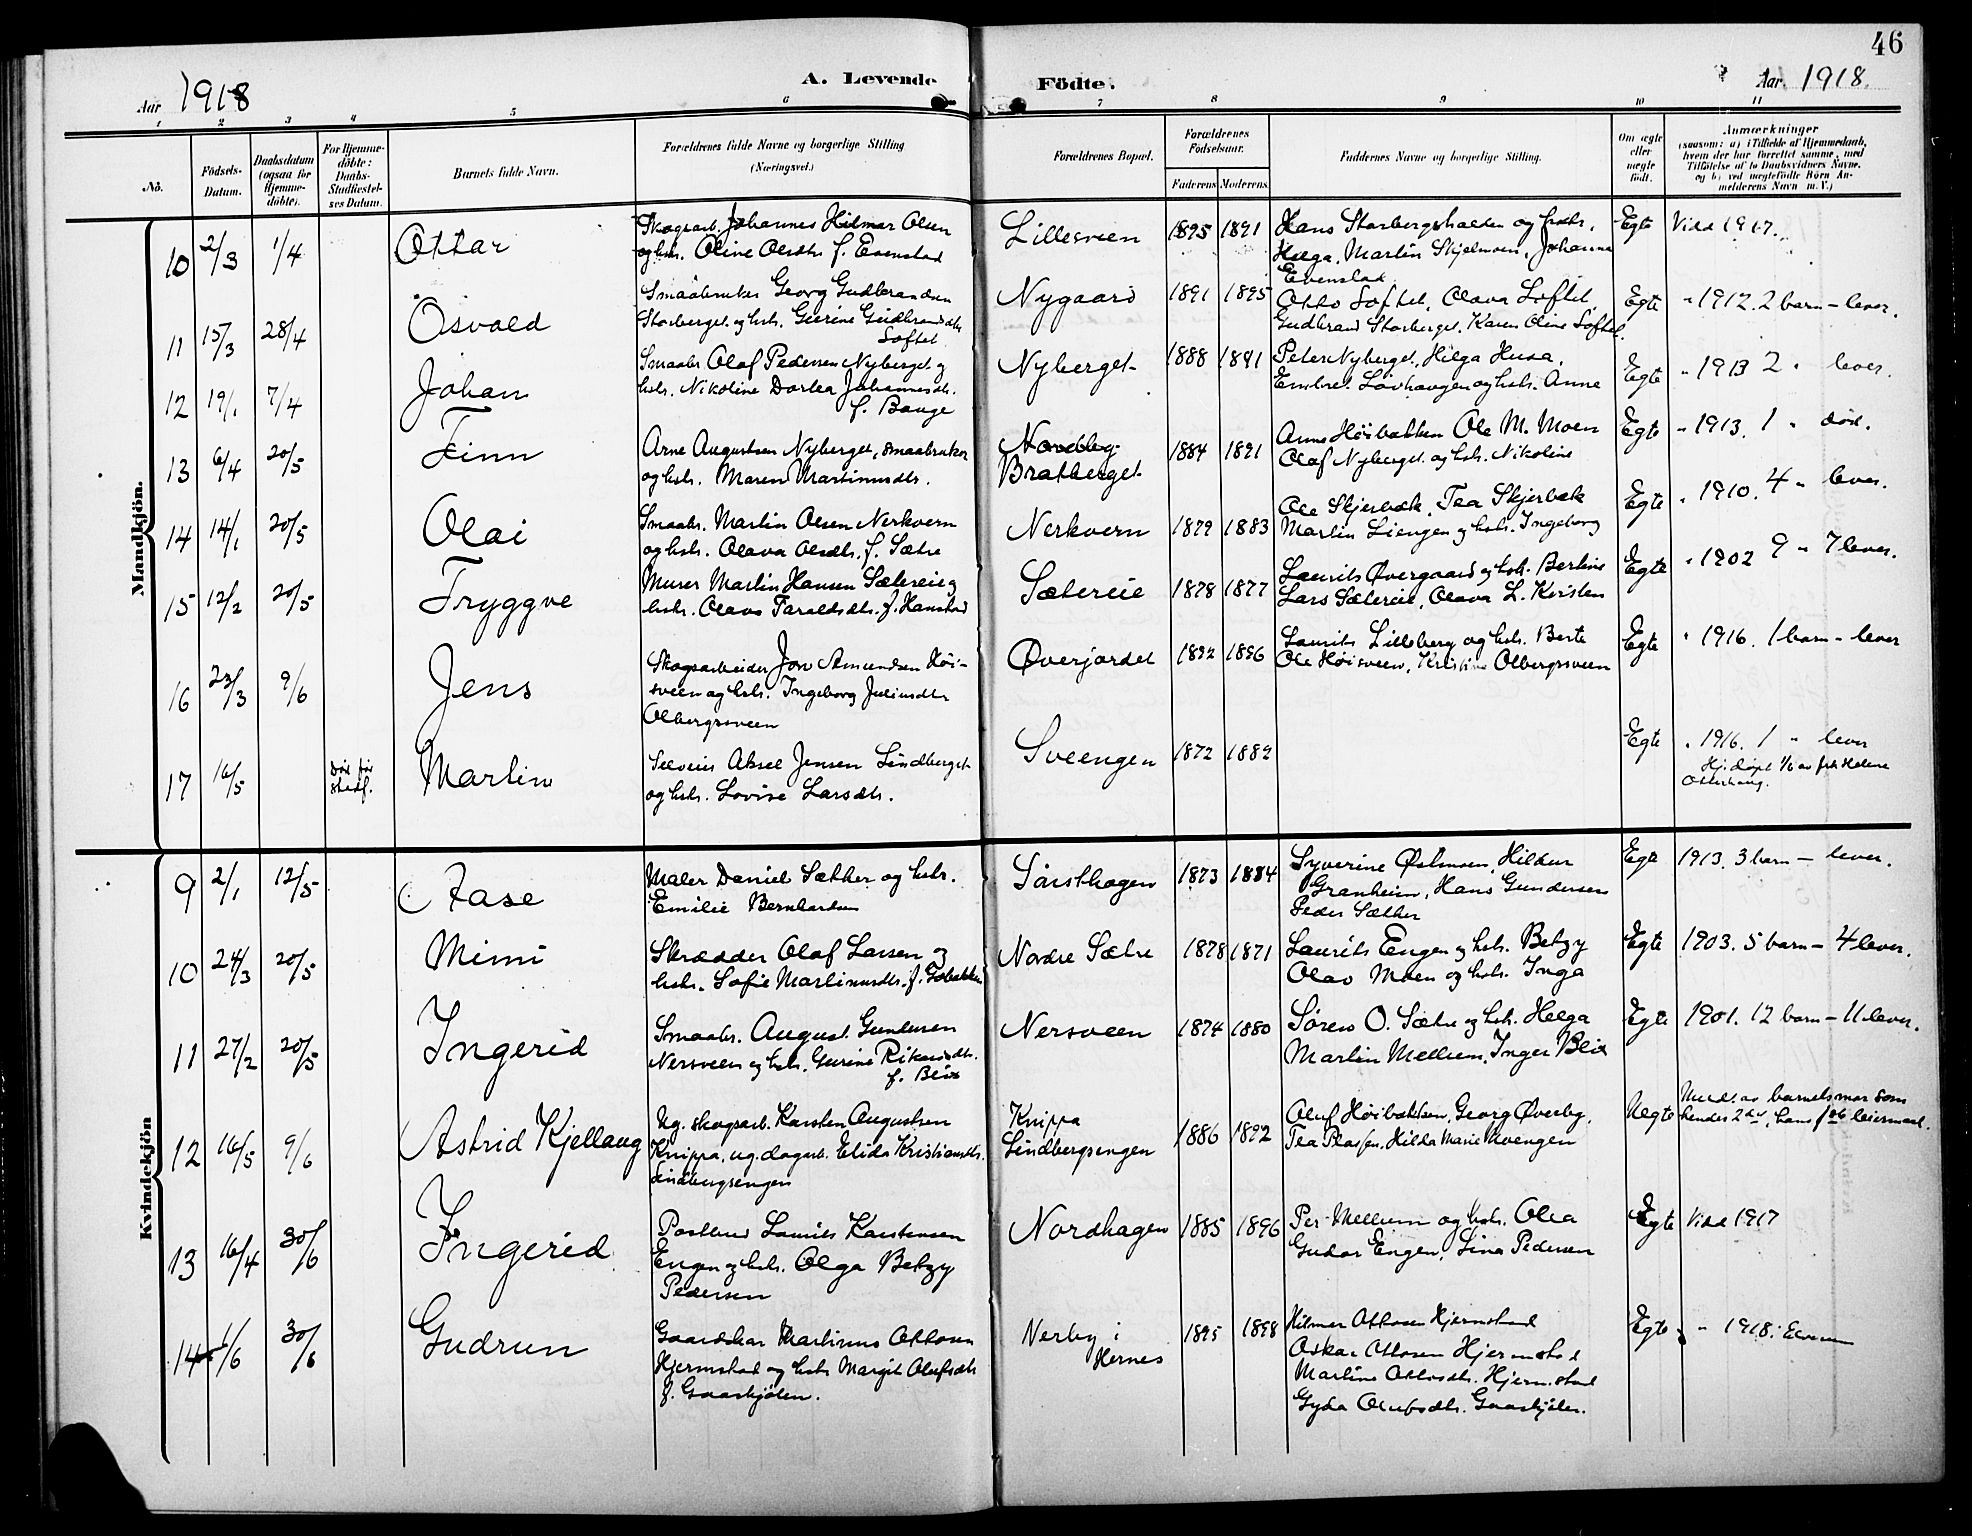 46
Aar 1918
A. Levende
Födte.
Aar 1918.
1 2 3 4 5 6 7 8 9 10 11
No.
Födsels-
Datum.
Daabsdatum
(ogsaa for
Hjemme-
döbte).
For Hjemme-
döbte:
Daabs-
Stadfæstel-
ses Datum.
Barnets fulde Navn.
Forældrenes fulde Navne og borgerlige Stilling
(Næringsvei.)
Forældrenes Bopæl.
Forældrenes
Födselsaar.
Faderens Moderens
Faddernes Navne og borgerlige Stilling.
Om ægte
eller
uægte
födt.
Anmærkninger
(saasom: a) i Tilfælde af Hjemmedaab,
hvem der har forrettet samme, med
Tilföielse af to Daabsvidners Navne,
og b) ved uægtefödte Börn An-
melderens Navn m. V.)
Mandkjön.
10 2/3 1/4 Ottar
Skogsarb. Johannes Hilmar Olsen
og hstr. Oline Olsdtr f. Evenstad
Lillesveen 1895 1891
Hans Storbergshalsen og hstr.
Helga, Martin Skjelmoen, Johanne
Evenstad
Egte Vidd 1917.
11 15/3 28/4 Osvald
Smaabruker Georg Gudbrandsen
Storberget og hstr. Geerine Gudbrandsdtr
Loftet
Nygaard 1891 1895
Otto Loftet, Olava Loftet,
Gudbrand Storberget, Karen Oline Loftet
Egte " 1912. 2 barn - lever.
12 19/1 7/4 Johan
Smaabr. Olaf Pedersen Nyberget og
hstr. Nikoline Dortea Johannesdtr.
f. Bauge
Nyberget 1888 1891
Peter Nyberget, Helga Husa,
Embret Løvhaugen og hstr. Anne
Egte " 1913 2 " lever.
13 6/4 20/5 Finn
Arne Augustsen Nyberget, smaabruker
og hstr. Maren Martinusdtr.
Nordby
Bratberget 1884 1891
Anne Høibakken Ole M. Moen
Olaf Nyberget og hstr. Nikoline
Egte " 1913. 1 " død.
14 14/1 20/5 Olai
Smaabr. Martin Olsen Nerkvern
og hstr. Olava Olsdtr. f. Sætre
Nerkvern 1879 1883
Ole Skjerbæk, Tea Skjerbæk
Martin Liengen og hstr. Ingeborg
Egte " 1910. 4 " lever.
15 12/2 20/5 Tryggve
Murer Martin Hansen Sætereie og
hstr. Olava Taraldsdtr. f. Hanstad
Sætereie 1878 1877
Laurits Øvergaard og hstr. Bertine
Lars Sætereie, Olava L. Kvisten
Egte " 1902 9 " 7 lever.
16 23/3 9/6 Jens
Skogsarbeider Jon Amundsen Høi-
sveen og hstr. Ingeborg Juliusdtr
Olbergsveen
Øverjordet 1892 1896
Laurits Lilleberg og hstr. Berte
Ole Høisveen, Kristine Olbergsveen
Egte " 1916. 1 barn - lever
17 16/5 Død før
stadf. Martin
Seleieier Aksel Jensen Lindberget
og hstr. Lovise Larsdtr.
Sveengen 1872 1882
Egte " 1916. 1 " lever
Hj. døpt 1/6 av frk Helene
Otterhaug.
Kvindekjön
9 2/1 12/5 Aase
Maler Daniel Sæther og hstr.
Emilie Bernhardsen
1873 1884
Syverine Østmoen, Hildur
Granheim, Hans Gundersen
Peder Sæther
Egte 1913. 3 barn - lever.
10 24/3 20/5 Mimi
Skrædder Olaf Larsen og
hstr. Sofie Martinusdtr. f.
Nordre Sætre 1878 1871
Laurits Engen og hstr. Betzy
Olav Moen og hstr. Inga
Egte 1903. 5 barn - 4 lever.
11 27/2 20/5 Ingerid
Smaabr. August Gundersen
Nersveen og hstr. Gurine Rikardsdtr.
f. Blix
Nersveen 1874 1880
Søren O. Sætre og hstr. Helga
Martin Mellum, Inger Blix
Egte 1901. 12 barn - 11 lever.
12 16/5 9/6 Astrid Kjellaug
Ug. skogsarb. Karsten Augustsen
Knippa, ug. dagarb. Elida Kristiansdtr.
Lindbergsengen
Knippa
Lindbergsengen 1886 1892
Oluf Høibakken, Georg Øverby,
Tea Plassen, Hilda Marie Moengen
Uegte Meld. av barnets mor som
hendes 2det, hans første leiermaal.
13 16/4 30/6 Ingerid
Postbud Laurits Karstensen
Engen og hstr. Olga Betzy
Pedersen
Nordhagen 1885 1896
Per Mellum og hstr. Olea
Gudar Engen, Lina Pedersen
Egte Vidd 1917
14 1/6 30/6 Gudrun
Gaardskar Martinus Ottosen
Hjermstad og hstr Margit Olufsdtr
f. Gaaskjølen.
Nerby i
Hernes 1895 1898
Hilmar Ottosen Hjermstad
Oskar Ottosen Hjermstad
Martine Ottosdtr. Hjermstad
Gyda Olufsdtr. Gaaskjølen.
Egte " 1918.